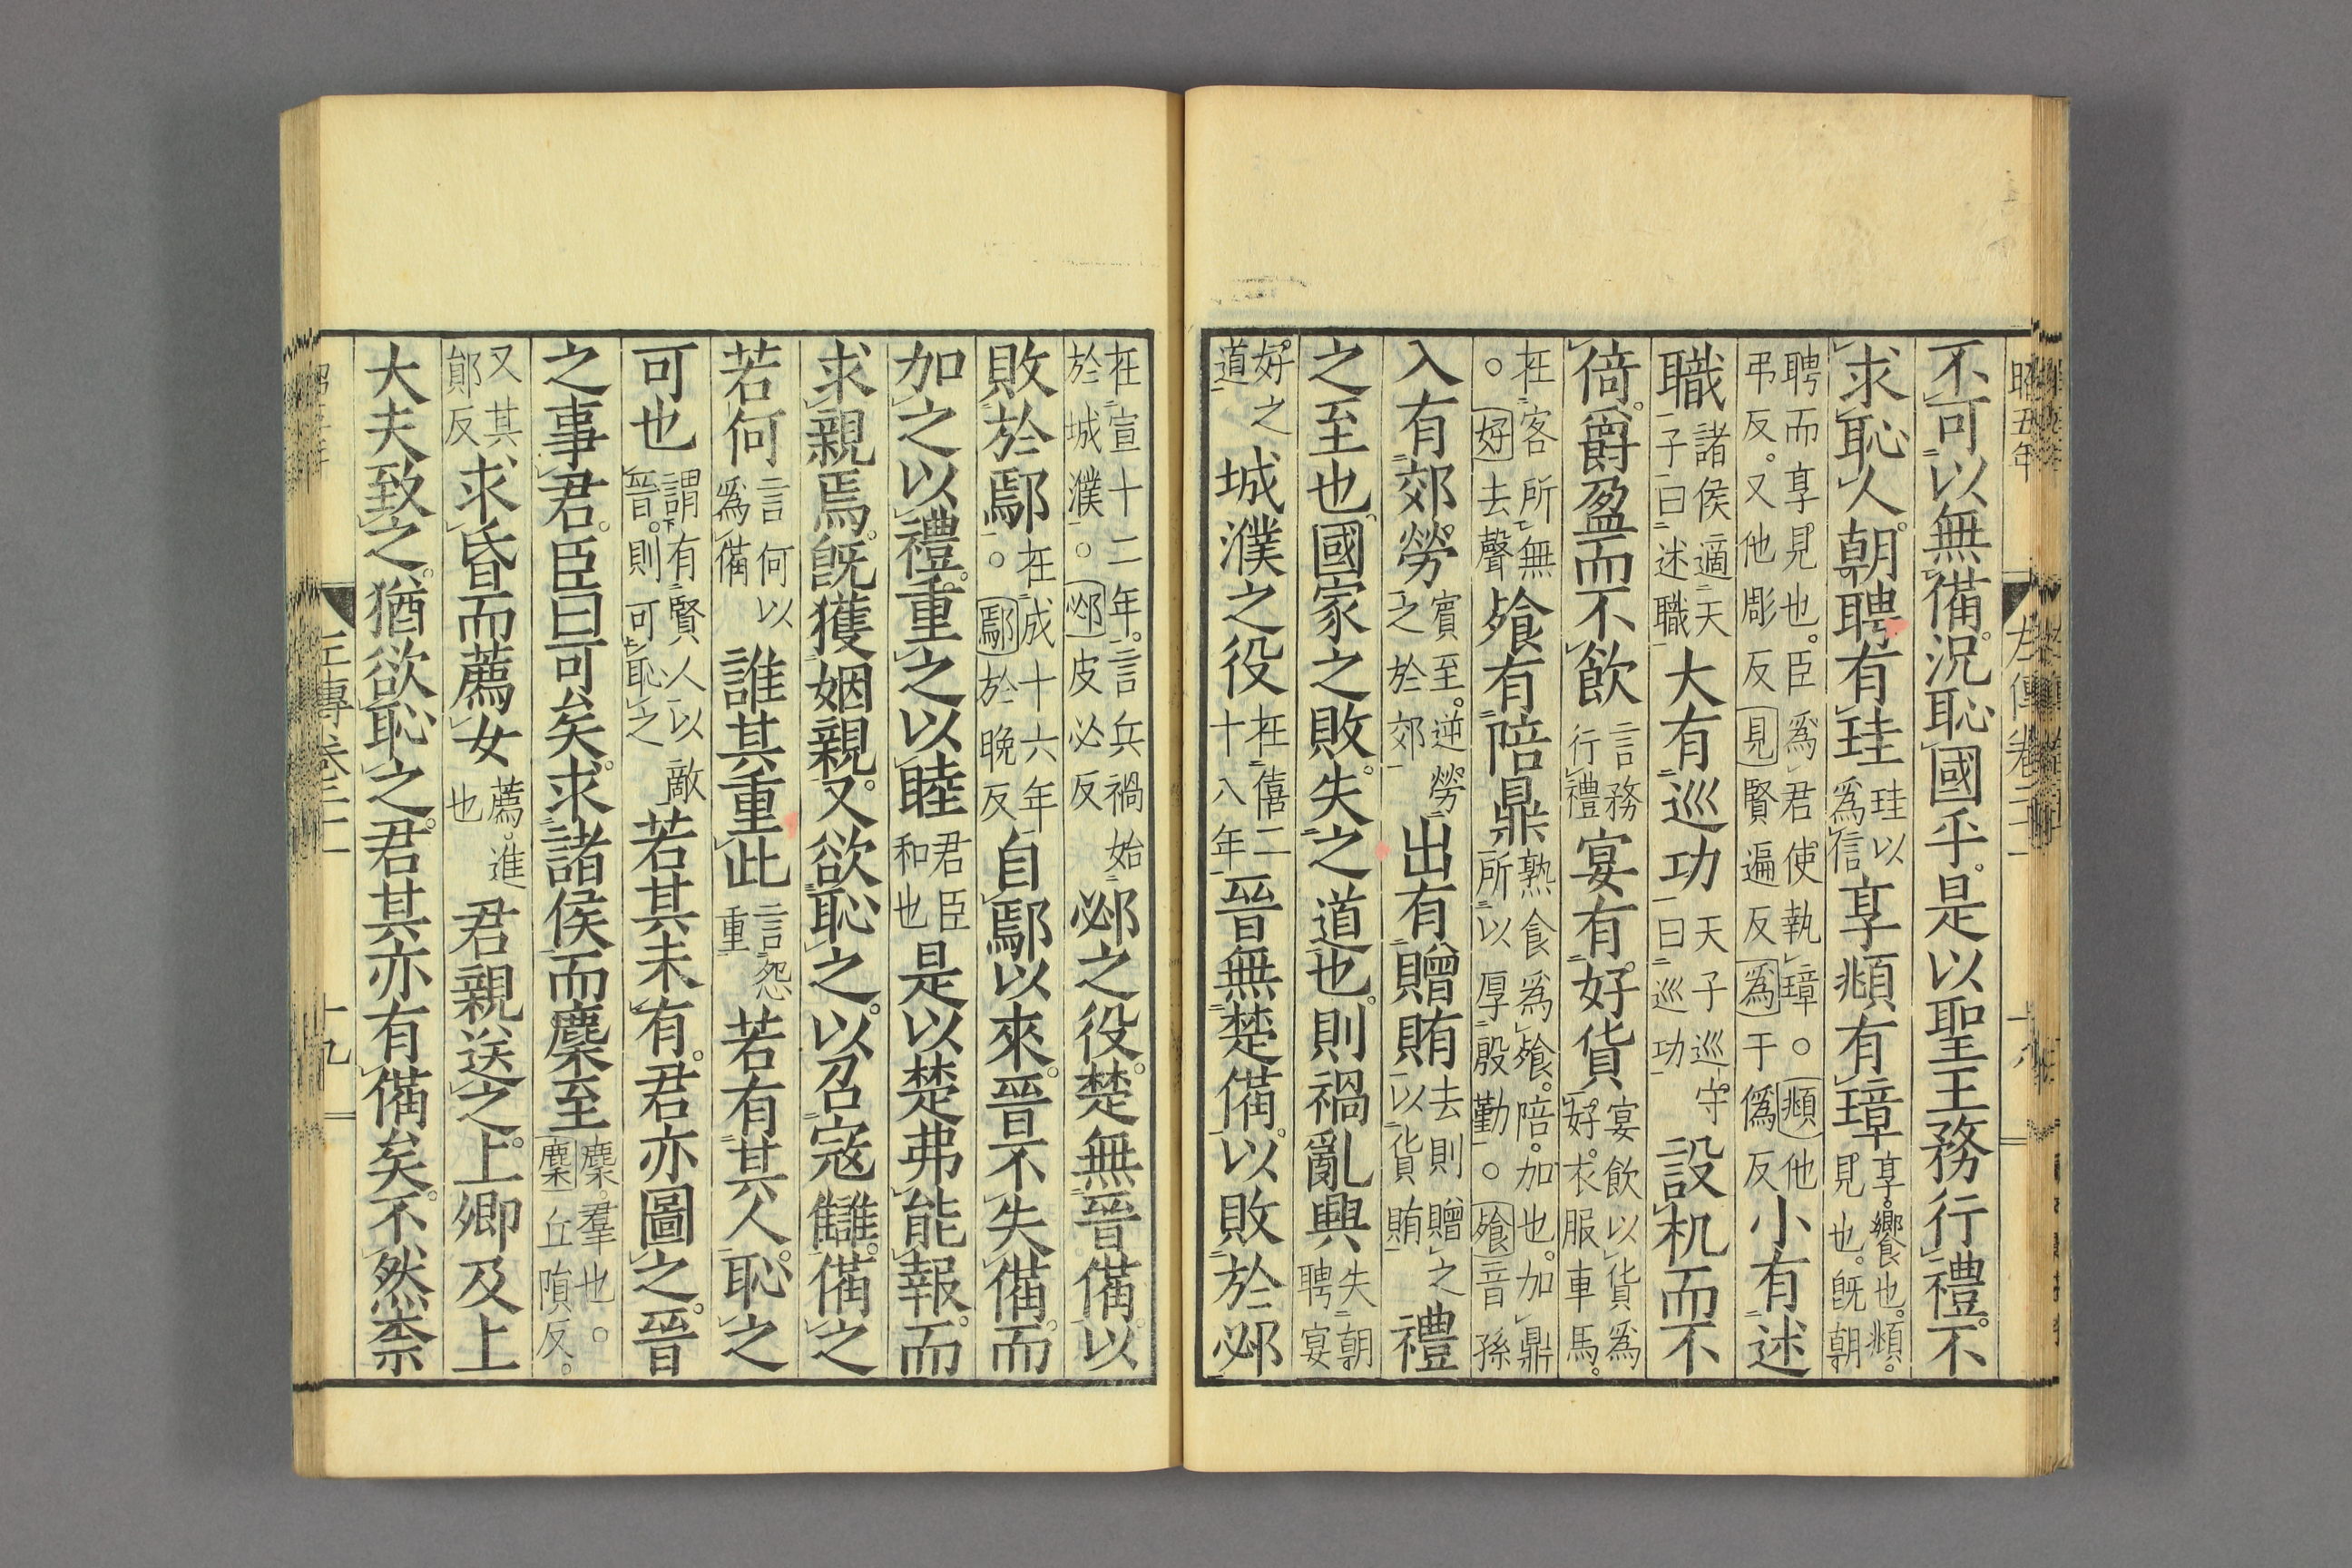 昭五年 左傳卷二十一
不可以無備。況恥國乎。是以聖王務行禮。不
求恥人。朝聘有珪珪以爲信享頫有璋享。饗也。頫。見也。既朝
聘而享見也。臣爲君使執璋。○頫他弔反。又他彫反見賢遍反爲于僞反小有述
職諸侯適天子曰述職大有巡功天子巡守曰巡功設机而不
倚。爵盈而不飲言務行禮宴有好貨宴飲以貨爲好。衣服車馬。
在客所無。○好去聲飱有陪鼎熟食爲飱。陪。加也。加鼎所以厚殷勤。○飱音孫
入有郊勞賓至。逆勞之於郊出有贈賄去則贈之以貨賄禮
之至也國家之敗。失之道也。則禍亂興失朝聘宴
好之道城濮之役在僖二十八年晉無楚備。以敗於邲
在宣十二年。言兵禍始於城濮。○邲皮必反邲之役。楚無晉備以
敗於鄢。在成十六年○鄢於晚反自鄢以來。晉不失備。而
加之以禮。重之以睦君臣和也是以楚弗能報。而
求親焉。既獲姻親。又欲恥之。以召寇讎。備之
若何言何以爲備誰其重此言怨重若有其人。恥之
可也謂有賢人以敵晉。則可恥之若其未有。君亦圖之。晉
之事君。臣曰可矣。求諸侯而麇至麇。羣也。○麇丘隕反。
又其鄖反求昏而薦女薦。進也君親送之。上卿及上
大夫致之。猶欲恥之。君其亦有備矣。不然柰
左傳卷二十一 十九